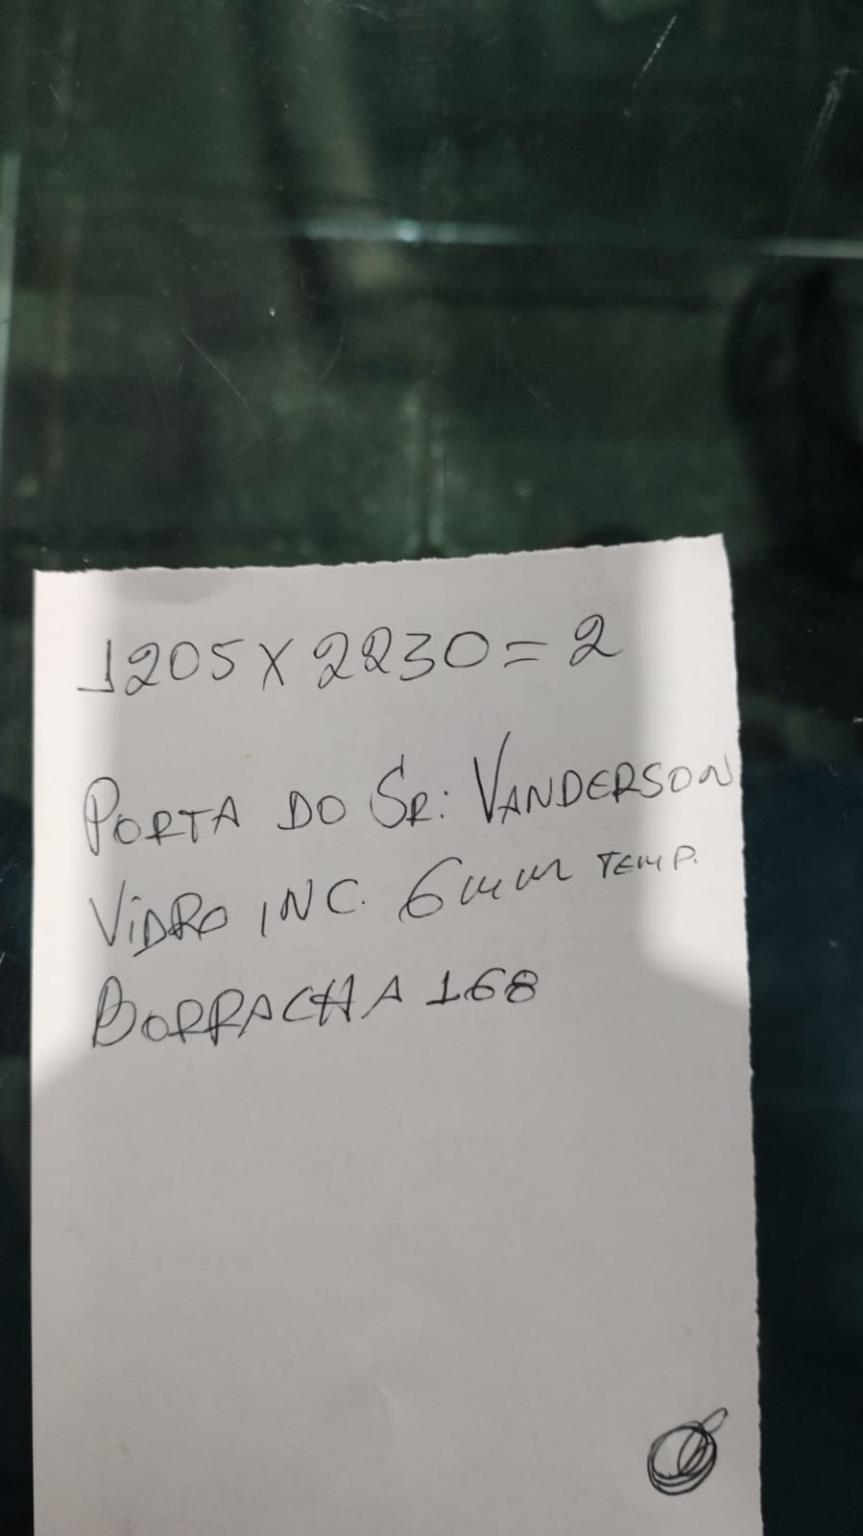 1205 X 2230 = 2
PORTA DO SR: VANDERSON
VIDRO INC. 6mm TEMP.
BORRACHA 168